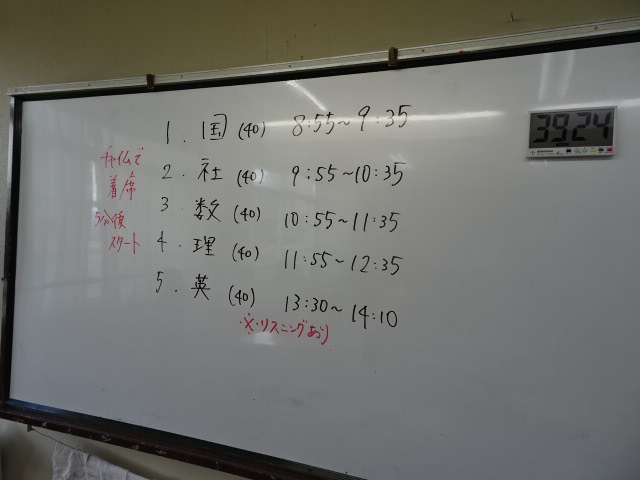 1. 国 (40) 8:55～9:35
2. 社 (40) 9:55～10:35
3. 数 (40) 10:55～11:35
4. 理 (40) 11:55～12:35
5. 英 (40) 13:30～14:10
※・リスニングあり
チャイムで
着席
5分後
スタート
39:24